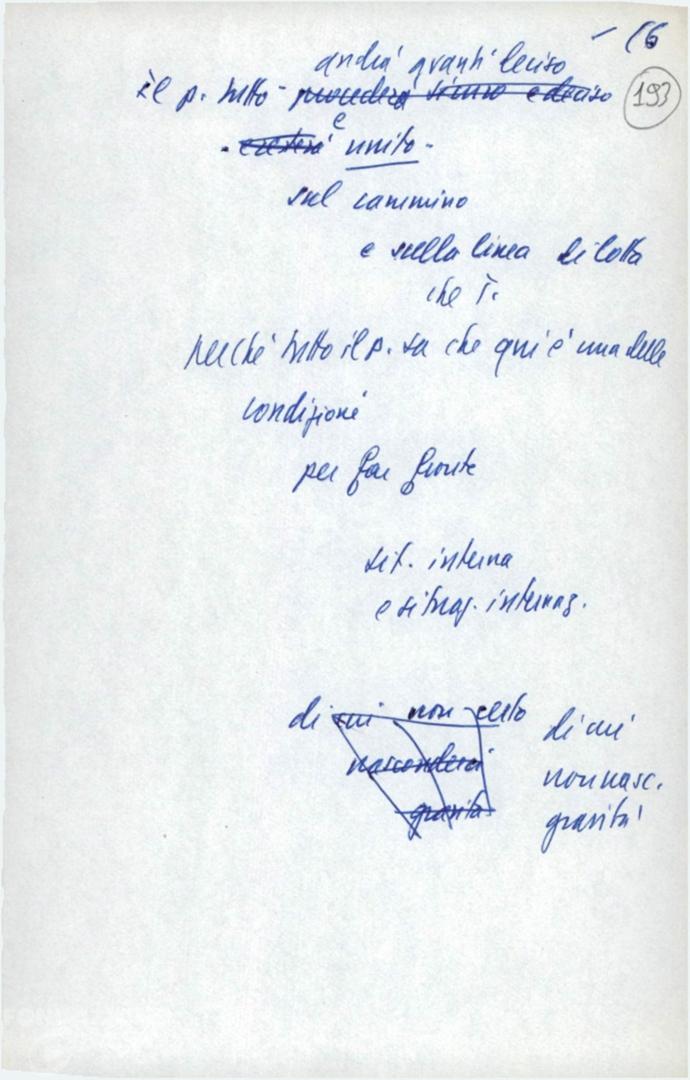 – 16
193
andrà avanti deciso
il p. tutto – procederà sicuro e deciso
e
– resterà unito –
sul cammino
e sulla linea di lotta
che T.
perché tutto il p. sa che qui è una delle
condizioni
per far fronte
sit. interna
e situaz. internaz.
di cui non certo
nasconderci
gravità
di cui
non nasc.
gravità